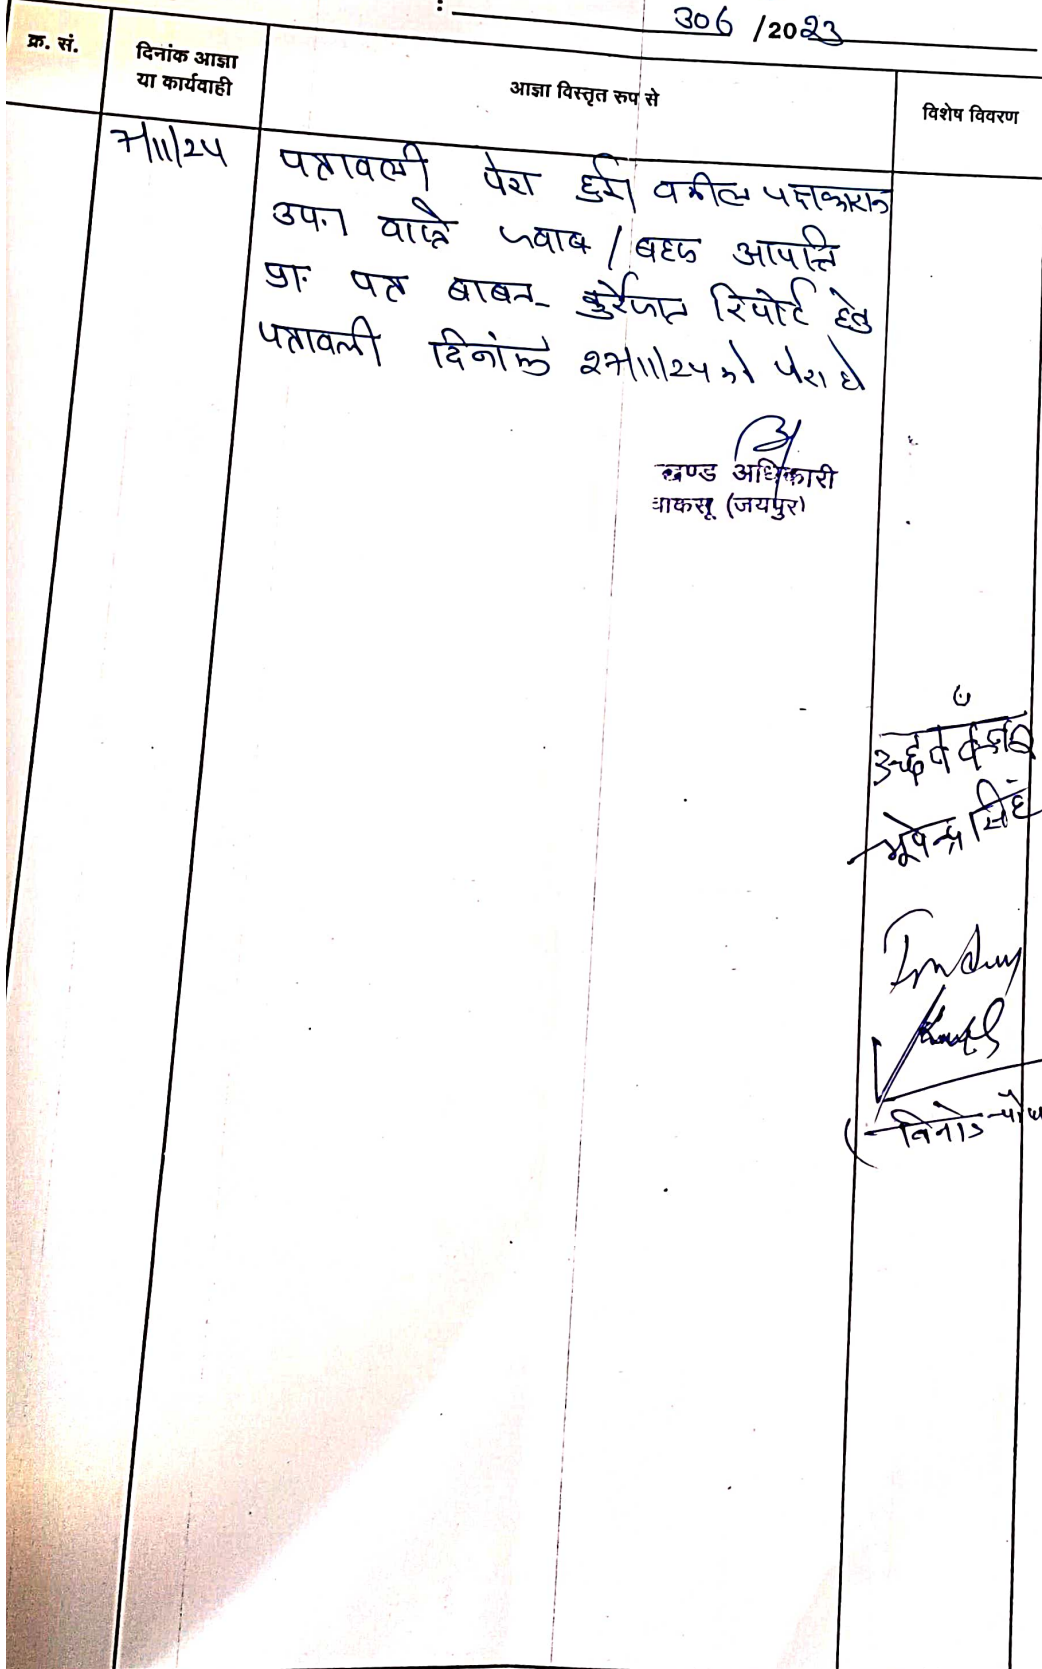 : 306 /2023
क्र. सं.
दिनांक आज्ञा
या कार्यवाही
आज्ञा विस्तृत रुप से
विशेष विवरण
7/11/24
पत्रावली पेश हुई। वकील पक्षकारान
उप.। वास्ते जवाब / बहस आपत्ति
प्रा. पत्र बाबत कुर्रेजात रिपोर्ट हेतु
पत्रावली दिनांक 27/11/24 को पेश हो
खण्ड अधिकारी
चाकसू (जयपुर)
भूपेन्द्र सिंह